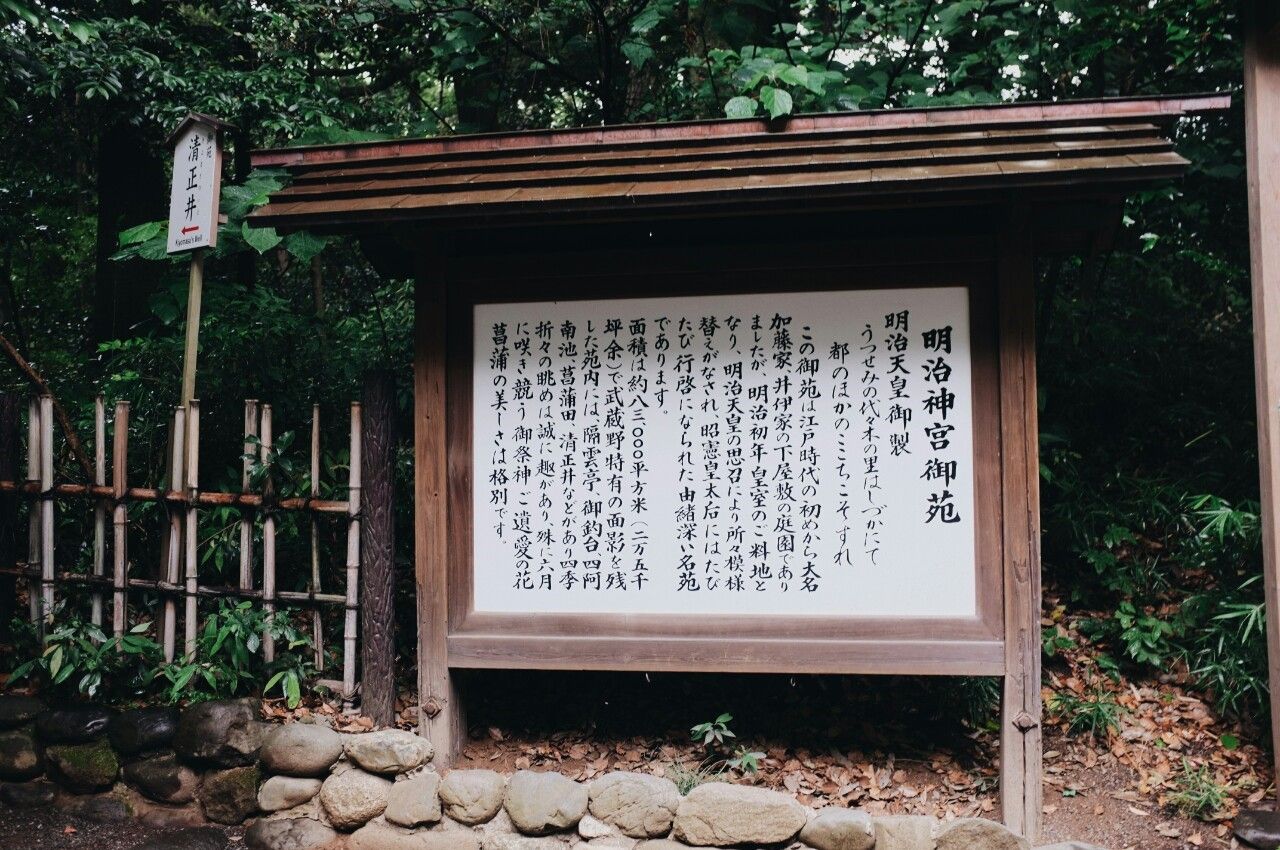 明治神宮御苑
明治天皇御製
うつせみの代々木の里はしづかにて
都のほかのこゝちこそすれ
この御苑は江戸時代の初めから大名
加藤家、井伊家の下屋敷の庭園であり
ましたが、明治初年皇室のご料地と
なり、明治天皇の思召により所々模様
替えがなされ、昭憲皇太后にはたび
たび行啓になられた由緒深い名苑
であります。
面積は約八三、〇〇〇平方米(二万五千
坪余)で武蔵野特有の面影を残
した苑内には、隔雲亭、御釣台、四阿
南池、菖蒲田、清正井などがあり四季
折々の眺めは誠に趣があり、殊に六月
に咲き競う御祭神ご遺愛の花
菖蒲の美しさは格別です。
清正井
Kiyomasa's Well